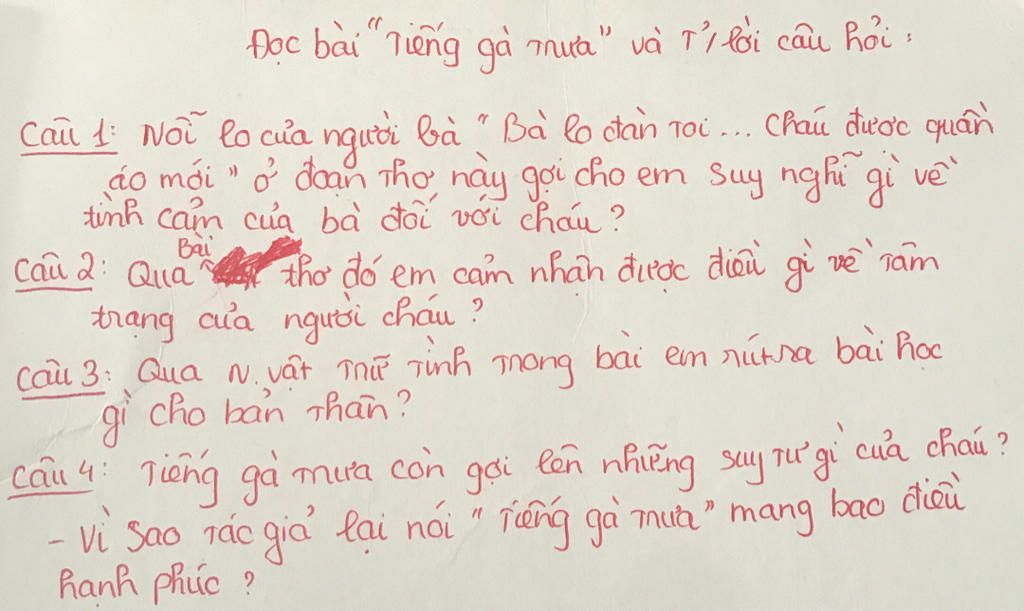 Đọc bài "Tiếng gà trưa" và T/lời câu hỏi:
Câu 1: Nỗi lo của người bà "Bà lo đàn toi... Cháu được quần
áo mới" ở đoạn thơ này gợi cho em suy nghĩ gì về
tình cảm của bà đối với cháu?
Bài
Câu 2: Qua thơ đó em cảm nhận được điều gì về tâm
trạng của người cháu?
Câu 3: Qua N.vật trữ tình trong bài em rút ra bài học
gì cho bản thân?
Câu 4: Tiếng gà trưa còn gợi lên những suy tư gì của cháu?
- Vì sao tác giả lại nói "Tiếng gà trưa" mang bao điều
hạnh phúc?